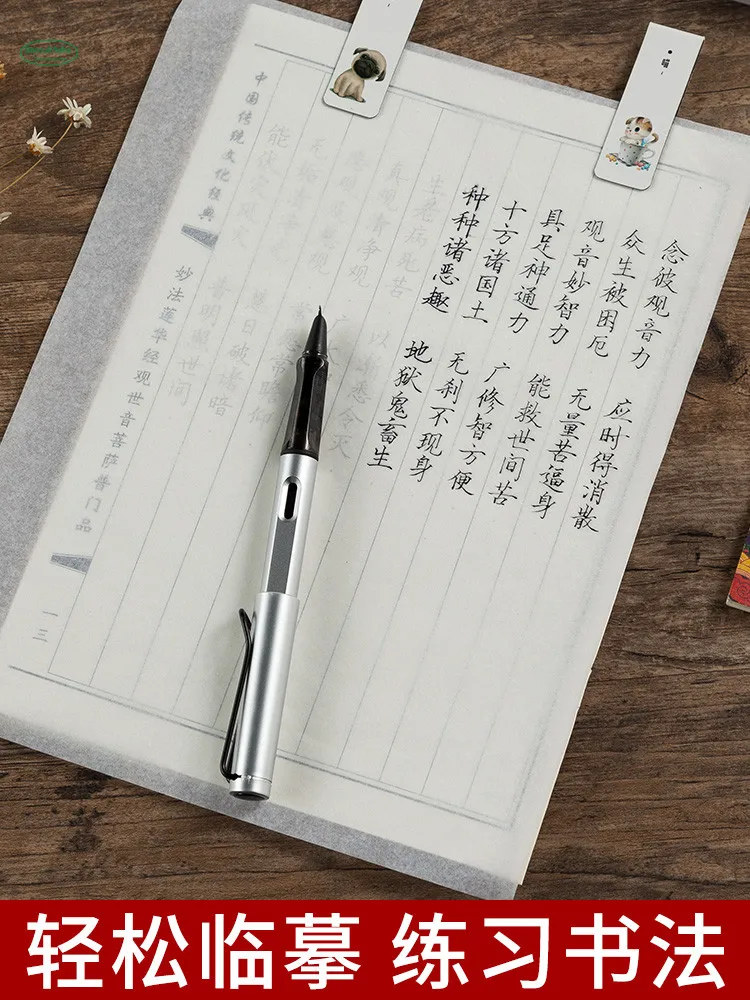 念彼观音力 应时得消散
众生被困厄 无量苦逼身
观音妙智力 能救世间苦
具足神通力 广修智方便
十方诸国土 无刹不现身
种种诸恶趣 地狱鬼畜生
生老病死苦 以 悉令灭
真观清净观 广
无垢 日破诸暗
能伏灾 明照世间
中国传统文化经典 妙法莲华经观世音菩萨普门品 一三
喵
轻松临摹 练习书法